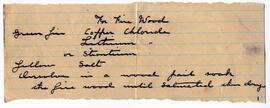 For Fire Wood
Green fire Copper Chloride
Lithium "
or Strontium
Yellow Salt
Dissolve in a wood pail soak
the fire wood until saturated then dry